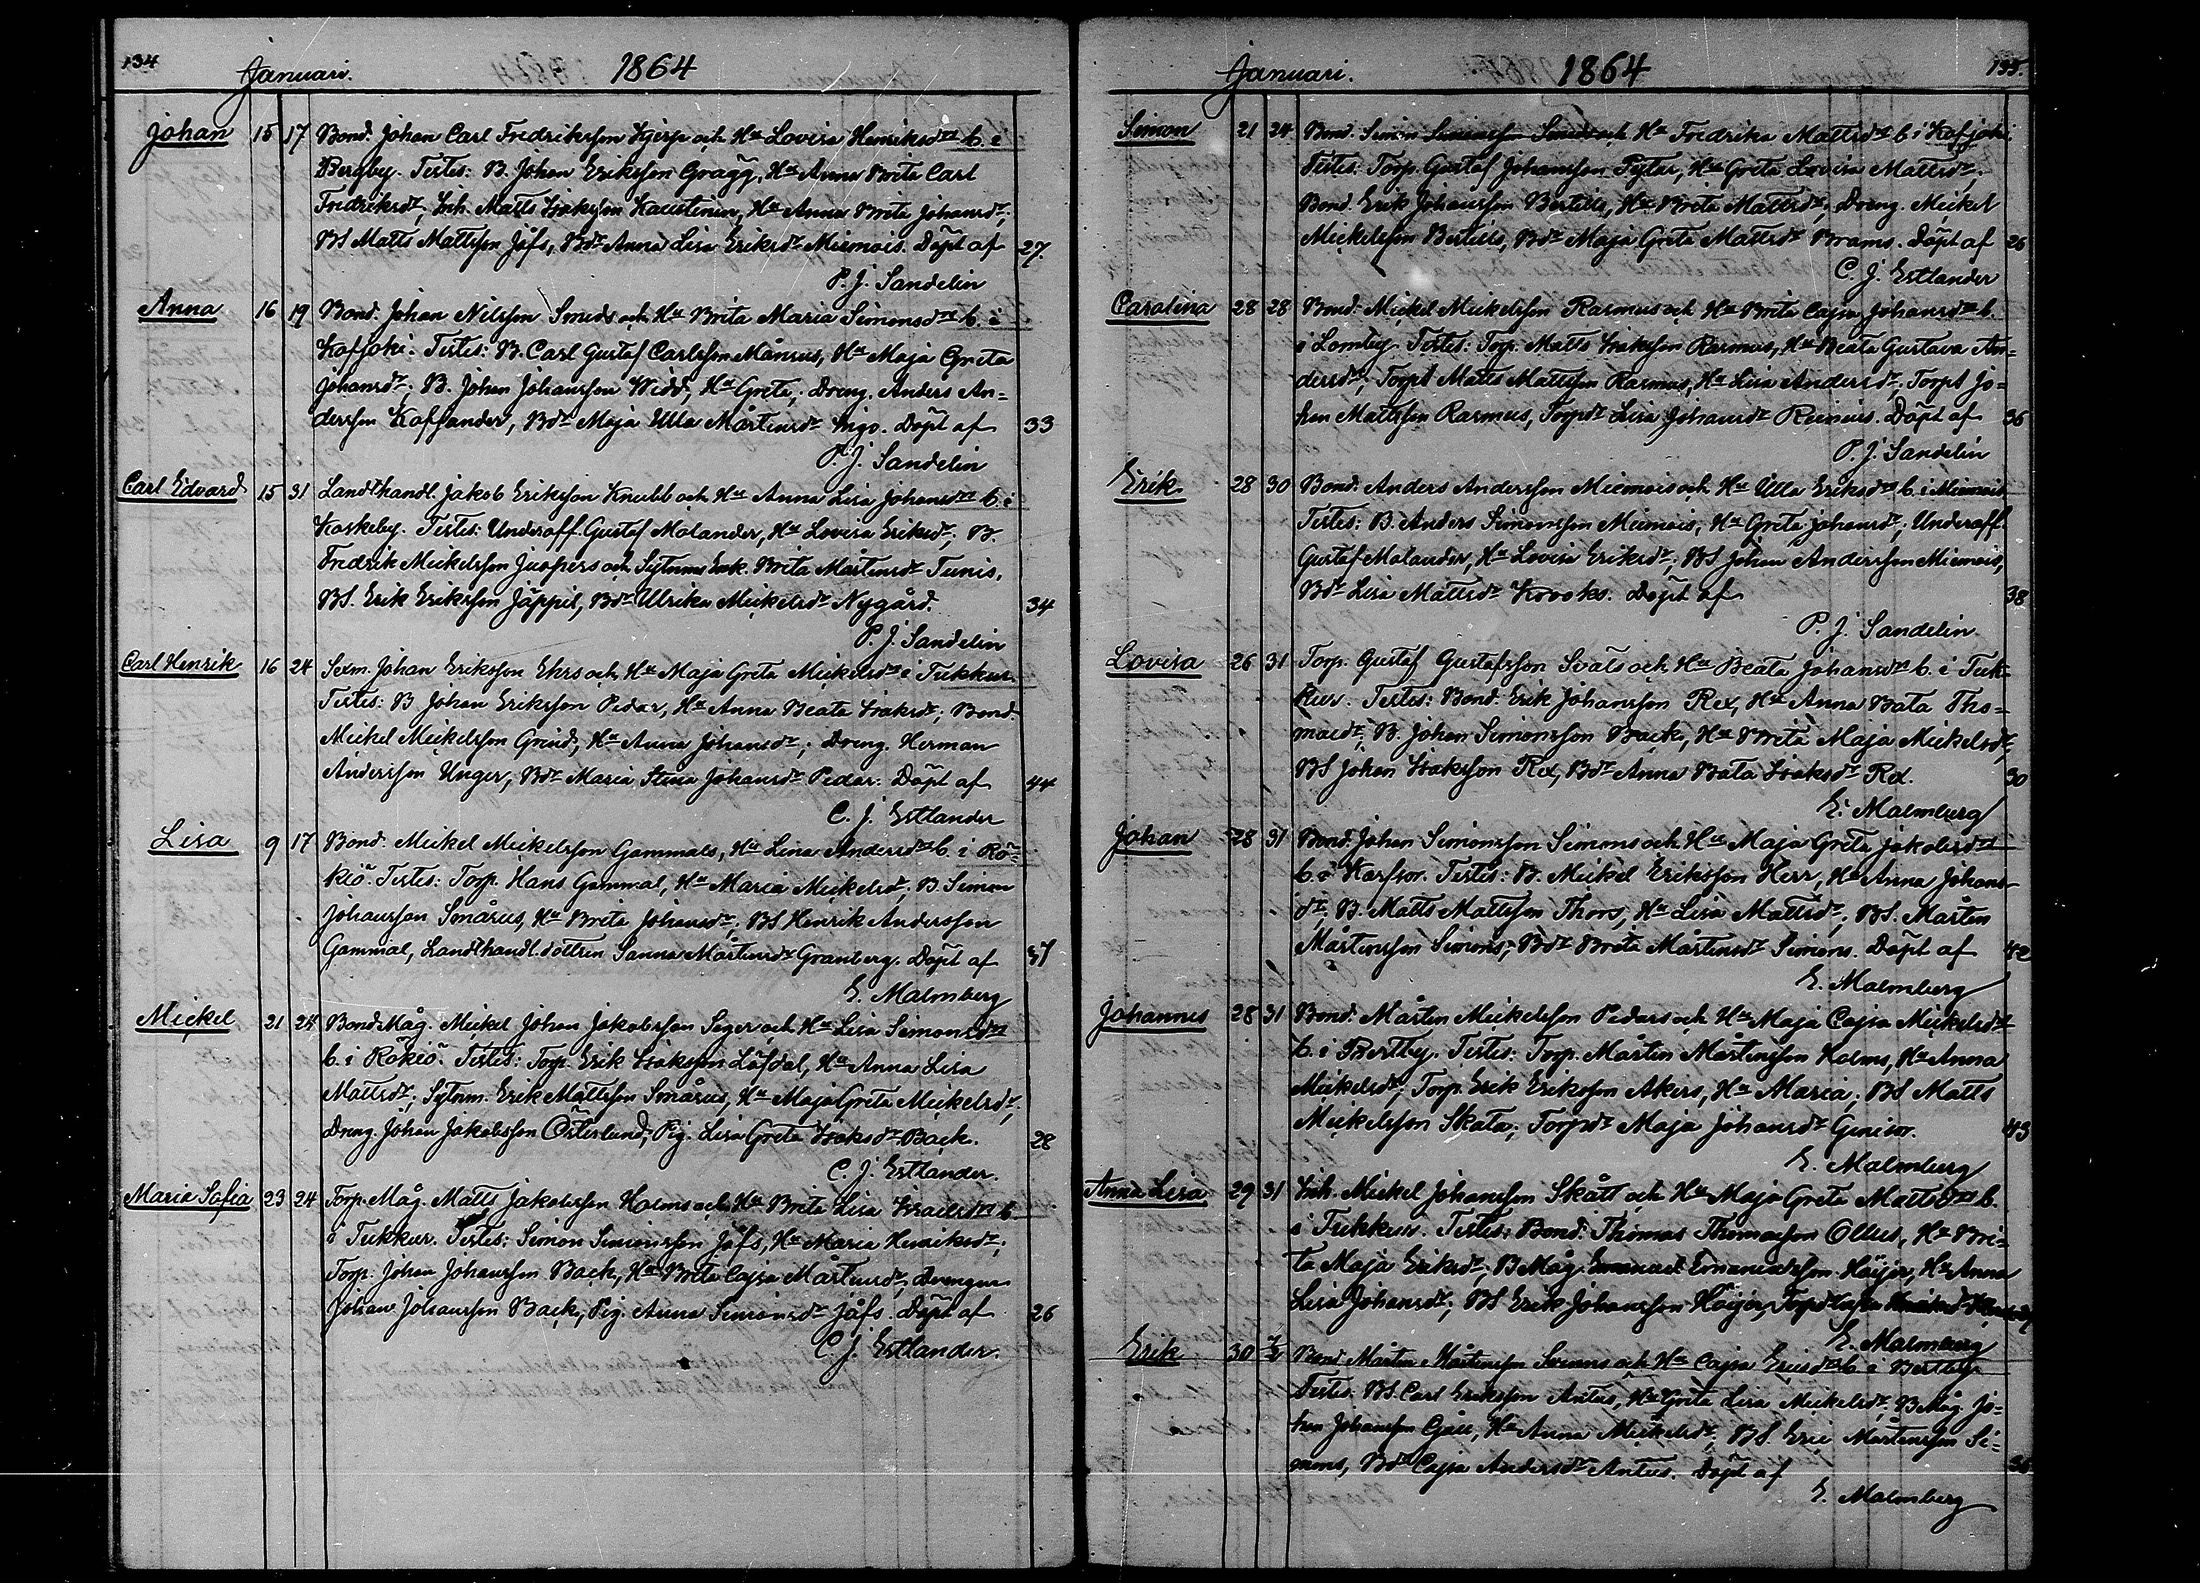 134 Januari. 1864
Johan 15 17 Bond. Johan Carl Fredriksson och Hu Lovisa Henriksdr b. i
Bergby. Testes: B. Johan Eriksson Grägg, Hu Anna Brita Carl
Fredriksdr, Inh. Matts Isaksson Kaustinen, Hu Anna Brita Johansdr;
BS Matts Mattsson Jåfs, Bdr Anna Lisa Eriksdr Miemois. Döpt af 27.
P. J. Sandelin
Anna 16 19 Bond. Johan Nilsson Smeds och Hu Brita Maria Simonsdr b. i
Kofjoki. Testes: B. Carl Gustaf Carlsson Månsus, Hu Maja Greta
Johansdr; B. Johan Johansson Widd, Hu Greta; Dreng. Anders An=
dersson Koffander, Bdr Maja Ulla Mårtensdr Ingo. Döpt af 33
P. J. Sandelin
Carl Edvard 15 31 Landthandl. Jakob Eriksson Knubb och Hu Anna Lisa Johansdr b. i
Koskeby. Testes: Underoff. Gustaf Molander, Hu Lovisa Eriksdr; B.
Fredrik Mickelsson Juspers och Sytnings Enk. Brita Mårtensdr Tunis,
BS. Erik Eriksson Jäppil, Bdr Ulrika Mickelsdr Nygård. 34
P. J. Sandelin
Carl Henrik 16 24 Sexm. Johan Eriksson Ehrs och Hu Maja Greta Mickelsdr i Tukkur.
Testes: B Johan Eriksson Pedar, Hu Anna Beata Isaksdr; Bond.
Mickel Mickelsson Grind, Hu Anna Johansdr; Dreng. Herman
Andersson Unger, Bdr Maria Stina Johansdr Pedar. Döpt af 44
C. J. Estlander
Lisa 9 17 Bond. Mickel Mickelsson Gammals, Hu Lina Andersdr b. i Rö=
kiö. Testes: Torp. Hans Gammal, Hu Maria Mickelsdr, B. Simon
Johansson Smårus, Hu Brita Johansdr; BS Henrik Andersson
Gammal, Landthandl. dottren Sanna Mårtensdr Granberg. Döpt af 37
E. Malmberg
Mickel 21 24 Bond Måg. Mickel Johan Jakobsson Seger och Hu Lisa Simonsdr
b. i Rökiö. Testes: Torp. Erik Isaksson Löfdal, Hu Anna Lisa
Mattsdr; Sytnm. Erik Mattsson Smårus, Hu Maja Greta Mickelsdr;
Dreng. Johan Jakobsson Österlund; Pig. Lisa Greta Isaksdr Back. 28
C. J. Estlander.
Maria Sofia 23 24 Torp. Måg. Matts Jakobsson Holms och Hu Brita Lisa Israelsdr b
i Tukkur. Testes: Simon Simonsson Jåfs, Hu Maria Henriksdr;
Torp. Johan Johansson Back, Hu Brita Cajsa Mårtensdr; drengen
Johan Johansson Back, Pig. Anna Simonsdr Jåfs. Döpt af 26
C. J. Estlander.
Januari. 1864 135.
Simon 21 24 Bond. Simon Simonsson Smeds och Hu Fredrika Mattsdr b. i Kofjoki
Testes: Torp. Gustaf Johansson Pytar, Hu Greta Lovisa Mattsdr;
Bond. Erik Johansson Bertills, Hu Brita Mattsdr; Dreng. Mickel
Mickelsson Bertills, Bdr Maja Greta Mattsdr Brams. Döpt af 26
C. J. Estlander
Carolina 28 28 Bond. Mickel Mickelsson Rasmus och Hu Brita Cajsa Johansdr b.
i Lomby. Testes: Torp. Matts Isaksson Rasmus, Hu Beata Gustava An=
dersdr; Torpt Matts Mattsson Rasmus, Hu Lisa Andersdr; Torpt Jo=
han Mattsson Rasmus, Torpdr Lisa Johansdr Reinius. Döpt af 36
P. J. Sandelin
Erik 28 30 Bond. Anders Andersson Miemois och Hu Ulla Eriksdr b. i Miemois,
Testes: B. Anders Simonsson Miemois, Hu Greta Johansdr; Underoff.
Gustaf Molander, Hu Lovisa Eriksdr; BS Johan Andersson Miemois,
Bdr Lisa Mattsdr Krooks. Döpt af 38
P. J. Sandelin.
Lovisa 26 31 Torp. Gustaf Gustafsson Svals och Hu Beata Johansdr b. i Tuk=
kur. Testes: Bond. Erik Johansson Rex, Hu Anna Bata Tho=
masdr; B. Johan Simonsson Back, Hu Brita Maja Mickelsdr;
BS Johan Isaksson Rex, Bdr Anna Bata Isaksdr Rex. 30
E. Malmberg
Johan 28 31 Bond. Johan Simonsson Simons och Hu Maja Greta Jakobsdr
b. i Karfsor. Testes: B. Mickel Eriksson Herr, Hu Anna Johans
dr; B. Matts Mattsson Thors, Hu Lisa Mattsdr; BS. Mårten
Mårtensson Simons; Bdr Brita Mårtensdr Simons. Döpt af 42
E. Malmberg
Johannes 28 31 Bond. Mårten Mickelsson Pedars och Hu Maja Cajsa Mickelsdr
b. i Bertby. Testes: Torp. Mårten Mårtensson Holms, Hu Anna
Mickelsdr; Torp. Erik Eriksson Akers, Hu Maria; BS Matts
Mickelsson Skata; Torpdr Maja Johansdr 43
E. Malmberg
Anna Lisa 29 31 Inh. Mickel Johansson Skått och Hu Maja Greta Mattsdr b.
i Tukkur. Testes: Bond. Thomas Thomasson Ollus, Hu Bri=
ta Maja Eriksdr; B Måg. Emanuel Emanuelsson Höijer, Hu Anna
Lisa Johansdr; BS Erik Johansson Höijer, Torpdr Cajsa
E. Malmberg
Erik 30 Bond Mårten Mårtensson Simons och Hu Cajsa Ericsdr b. i Bertby
Testes: BS. Carl Eriksson Antus, Hu Greta Lisa Mickelsdr; B Måg. Jo=
han Johansson, Hu Anna Mickelsdr; BS. Eric Mårtensson Si=
mons, Bdr Cajsa Andersdr Antus. Döpt af 36
E. Malmberg